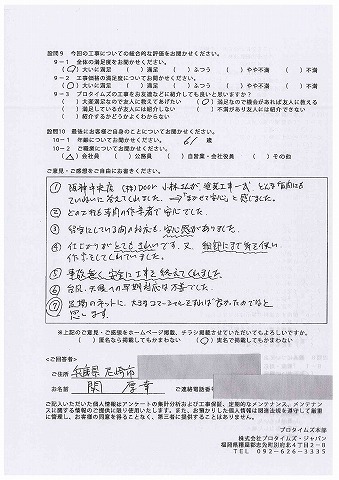 設問9 今回の工事についての総合的な評価をお聞かせください。
9-1 全体の満足度をお聞かせください。
(○)大いに満足 ( )満足 ( )ふつう ( )やや不満 ( )不満
9-2 工事価格の満足度についてお聞かせください。
(○)大いに満足 ( )満足 ( )ふつう ( )やや不満 ( )不満
9-3 プロタイムズの工事をお友達などに紹介しても良いと思いますか?
( )大変満足なので友人に教えてあげたい (○)満足なので機会があれば友人に教える
( )満足しているが友人には紹介しない ( )不満があるので友人には紹介できない
( )紹介するかどうかよくわからない
設問10 最後にお客様ご自身のことについてお聞かせください。
10-1 年齢についてお聞かせください。 61 歳
10-2 ご職業についてお聞かせください。
(△)会社員 ( )公務員 ( )自営業・会社役員 ( )その他
ご意見・ご感想をご自由にお書きください。
① 阪神中央店 (株)DOOR 小林さんが 塗装工事一式 どんな質問にも
ていねいに 答えてくれました。→「まかせて安心」と感じました。
② どの工程も専門の作業者で安心でした。
③ 留守にしている間の対応も 安心感がありました。
④ 仕上りがとてもきれいです。又、細部にまで気を使い
作業をしてくれていました。
⑤ 事故無く安全に工事を終えてくれました。
⑥ 台風・天候への早期対応は不要でした。
⑦ 足場のネットに、大きなコマーシャルをすれば良かったのでは?と
思います。
※上記のご意見・ご感想をホームページ掲載、チラシ掲載させていただいてもよろしいですか。
( )匿名なら掲載してもかまわない (○)実名で掲載してもかまわない
<ご回答者>
ご住所 兵庫県尼崎市
お名前 関 厚幸 ご連絡先電話番号
ご記入いただいた個人情報はアンケートの集計分析および工事保証、定期的なメンテナンス、メンテナン
スに関する情報のご提供に限り使用いたします。また、お預かりした個人情報は関連法規を遵守して厳重
に管理し、お客様の同意を得ることなく、第三者に提供することはありません。
プロタイムズ本部
株式会社プロタイムズ・ジャパン
福岡県糟屋郡志免町別府北4丁目2-8
TEL 092-626-3335